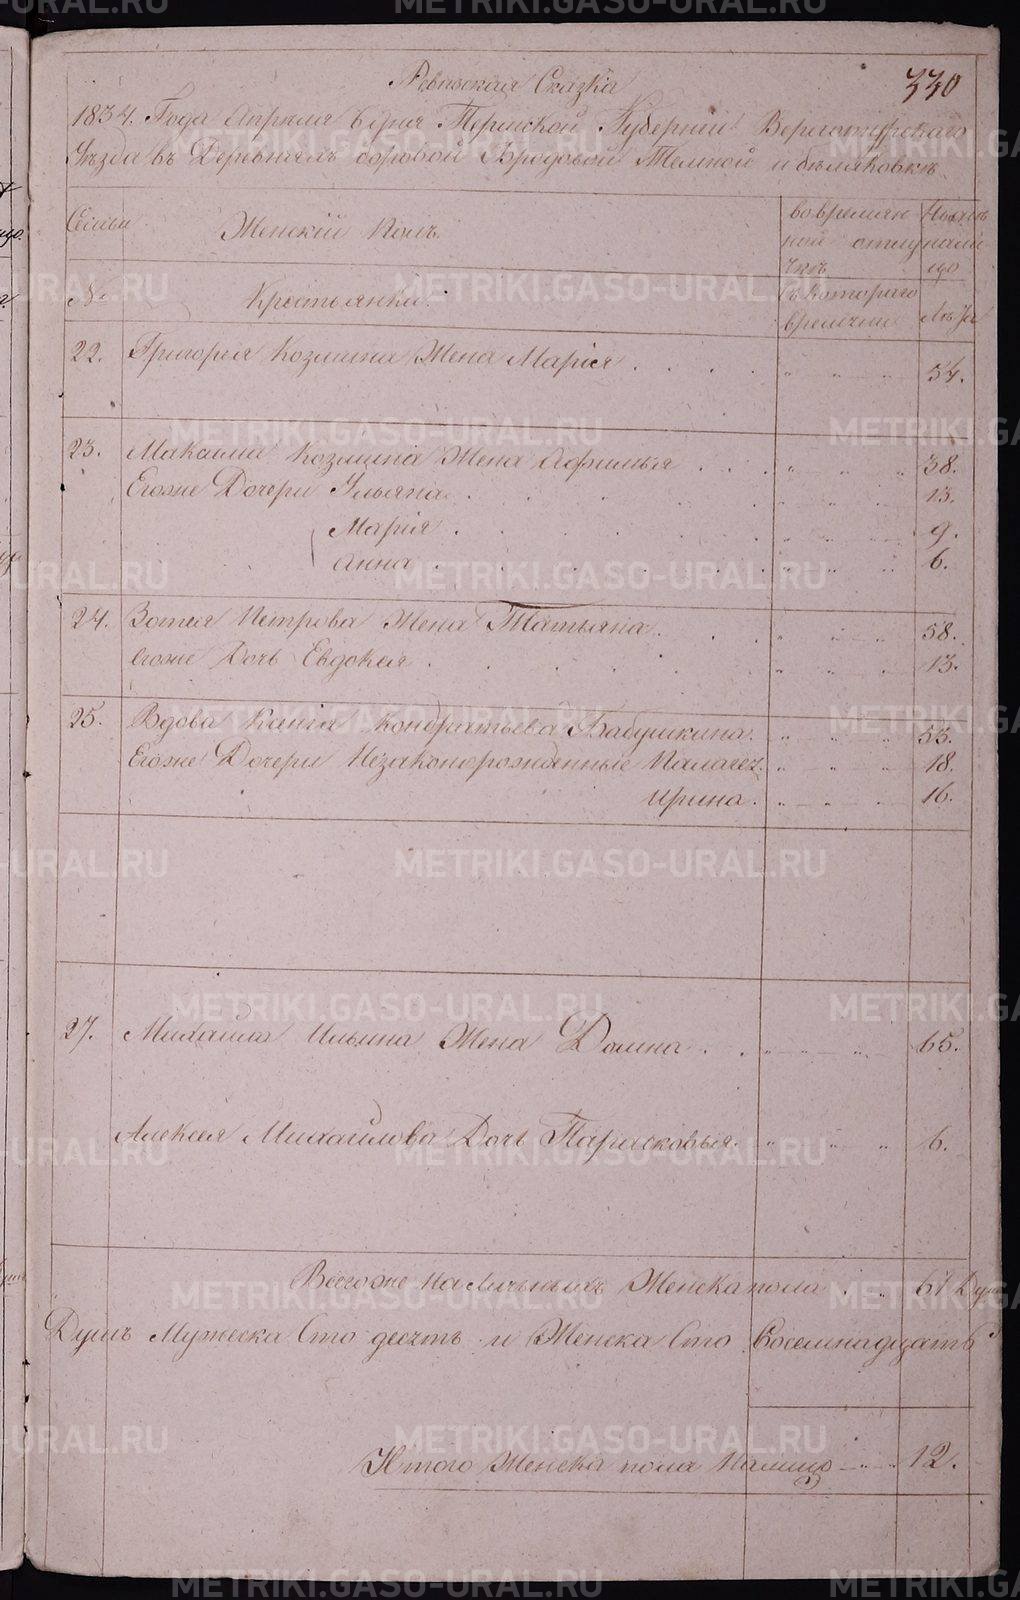 330
Ревизская Сказка
1834. Года Апреля 6 дня Пермской Губернии Верхотурскаго
Уѣзда въ Деревняхъ Боровой Бродовой Темной и бѣляковкѣ
Семьи Женскій Полъ. во времян ной отлучкѣ Нынѣ на лицо
№ Крестьянки. Съ котораго времени Лѣта
22. Григорья Козмина Жена Марія . . . . 34.
23. Максима Козмина Жена Афимья . . . 38.
Егоже Дочери Ульяна . . . 13.
Марія . . . 9.
Анна . . . 6.
24. Зотея Петрова Жена Татьяна . . . 58.
егоже Дочь Евдокея . . . 13.
25. Вдова Ксенія Кондратьева Бабушкина. 53.
Егоже Дочери Незаконорожденные Палагея. 18.
Ирина. 16.
27. Михаила Ильина Жена Домна . . 65.
Алексея Михайлова Дочь Парасковья. 6.
Всегоже на личныхъ Женска пола . . 67 Душ
Душъ Мужеска Сто десеть и Женска Сто Восемнадцать
Итого Женска пола Налицо 12.
METRIKI.GASO-URAL.RU